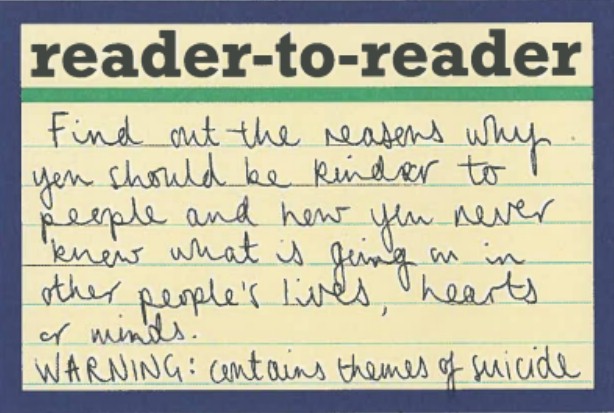 reader-to-reader
Find out the reasons why
you should be kinder to
people and how you never
know what is going on in
other people's lives, hearts
or minds.
WARNING: contains themes of suicide